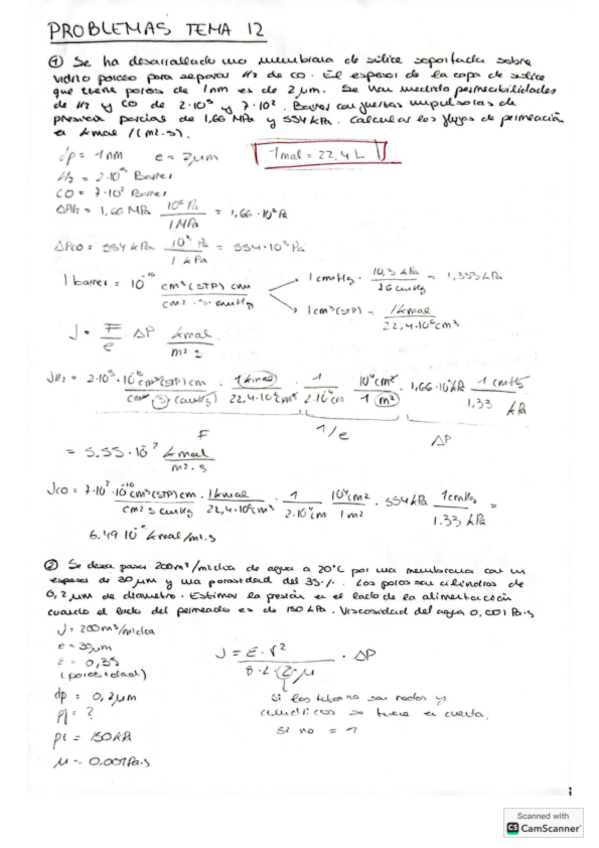 PROBLEMAS TEMA 12
① Se ha desarrollado una membrana de sílice soportada sobre
vidrio poroso para separar H2 de CO. El espesor de la capa de sílice
que tiene poros de 1nm es de 2 µm. Se han medido permeabilidades
de H2 y CO de 2·10⁵ y 7·10². Barrer con fuerzas impulsoras de
presión parcial de 1,66 MPa y 554 kPa. Calcular los flujos de permeación
en kmol/(m2.s).
dp = 1nm e = 2µm 1mol = 22,4 L
H2 = 2·10⁵ Barrer
CO = 7·10² Barrer
ΔPH2 = 1,66 MPa 10⁶ Pa / 1 MPa = 1,66·10⁶ Pa
ΔPCO = 554 kPa 10³ Pa / 1 kPa = 554·10³ Pa
1 barrer = 10⁻¹⁰ cm³(STP) cm / cm²·s·cmHg
1cmHg · 10,3 kPa / 76 cmHg = 1,333 kPa
1cm³(STP) = 1kmol / 22,4·10⁶cm³
J = F/e ΔP kmol / m² s
JH2 = 2·10⁵·10⁻¹⁰ cm³(STP)cm / cm² s (cmHg) · 1 kmol / 22,4·10⁶cm³ · 1 / 2·10⁻⁴cm · 10⁴cm² / 1 m² · 1,66·10³kPa 1 cmHg / 1,33 kPa
F 1/e ΔP
= 5.55·10⁻² kmol / m²·s
JCO = 7·10²·10⁻¹⁰ cm³(STP)cm / cm² s cmHg · 1kmol / 22,4·10⁶cm³ · 1 / 2·10⁻⁴cm · 10⁴cm² / 1m² · 554kPa · 1cmHg / 1.33 kPa =
6.49 10⁻⁵ kmol/m².s
② Se desea pasar 200m³/m²dia de agua a 20°C por una membrana con un
espesor de 30 µm y una porosidad del 35%. Los poros son cilindros de
0,2 µm de diametro. Estimar la presión en el lado de la alimentación
cuando el lado del permeado es de 150 kPa. Viscosidad del agua 0,001 Pa·s
J = 200m³/m²dia
e = 30µm
ε = 0,35
(porosidad)
J = ε·r² / 8·L·τ·µ · ΔP
dp = 0,2µm
si no = 1
= 150kPa
µ = 0.001Pa·s
Scanned with
CS CamScanner